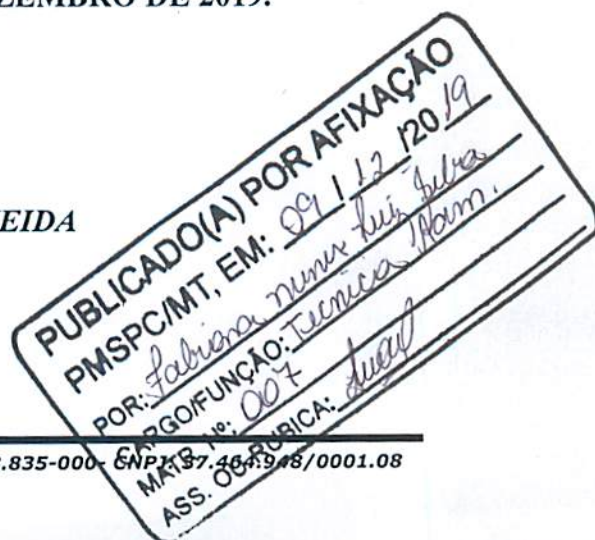 ZEMBRO DE 2019.
EIDA
PUBLICADO(A) POR AFIXAÇÃO
PMSPC/MT, EM: 09 / 12 / 20 19
POR: Fabiana Nunes Luiz Silva
CARGO/FUNÇÃO: Tecnica Adam.
MATR. Nº: 007
ASS. OU RUBICA:
.835-000- CNPJ: 37.464.948/0001.08